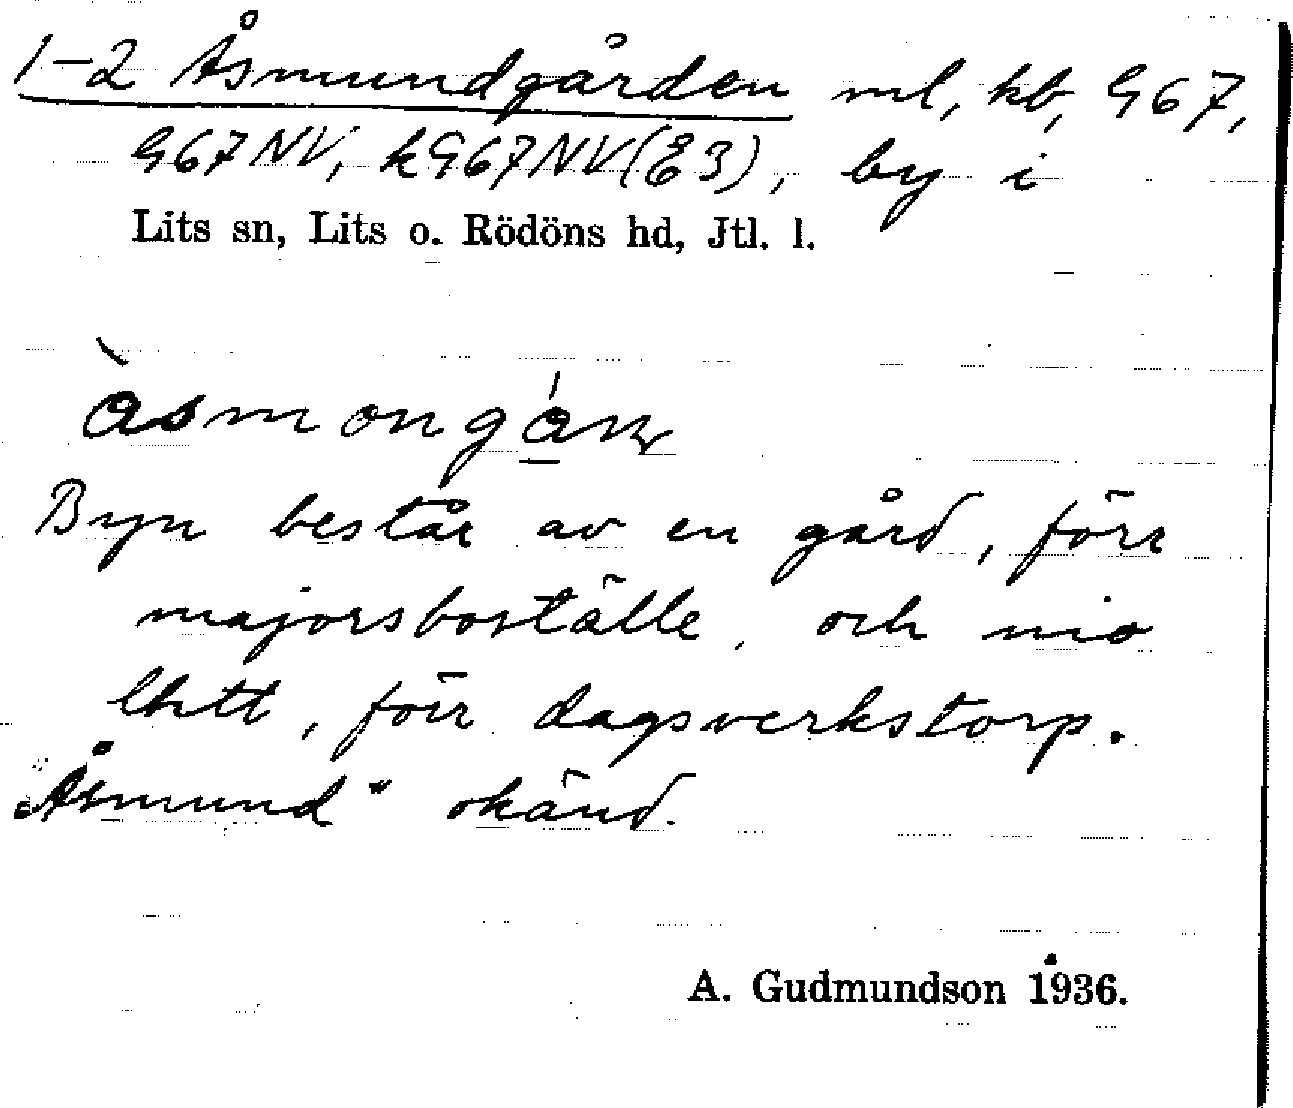 1-2 Åsmundgården ml, kb, G67,
G67NV, kG67NV(E3), by i
Lits sn, Lits o. Rödöns hd, Jtl. l.
Byn består av en gård, förr
majorsboställe, och nio
lhtt, förr dagsverkstorp.
„Åsmund" okänd.
A. Gudmundson 1936.